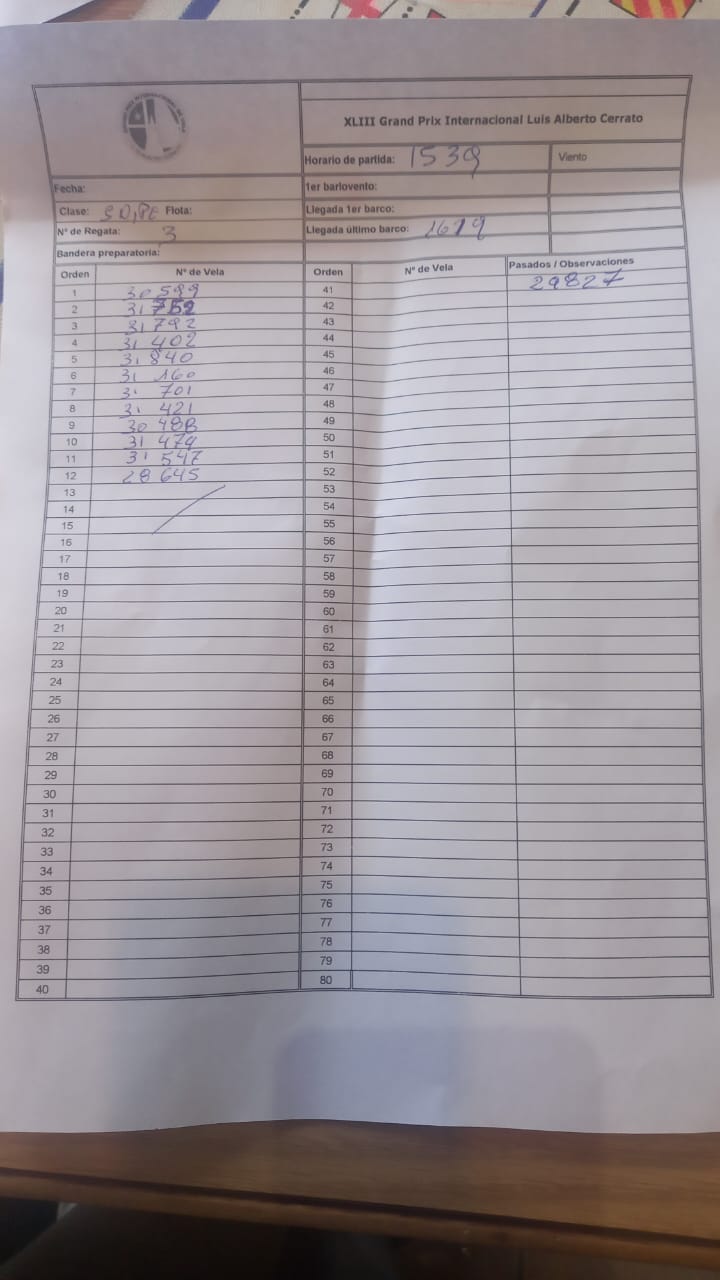 XLIII Grand Prix Internacional Luis Alberto Cerrato
Horario de partida: 1539 Viento
Fecha: 1er barlovento:
Clase: SNIPE Flota: Llegada 1er barco:
N° de Regata: 3 Llegada último barco: 1619
Bandera preparatoria:
Orden N° de Vela Orden N° de Vela Pasados / Observaciones
1 30599 41 29827
2 31752 42
3 31792 43
4 31402 44
5 31840 45
6 31160 46
7 31701 47
8 31421 48
9 30488 49
10 31479 50
11 31547 51
12 28645 52
13 53
14 54
15 55
16 56
17 57
18 58
19 59
20 60
21 61
22 62
23 63
24 64
25 65
26 66
27 67
28 68
29 69
30 70
31 71
32 72
33 73
34 74
35 75
36 76
37 77
38 78
39 79
40 80